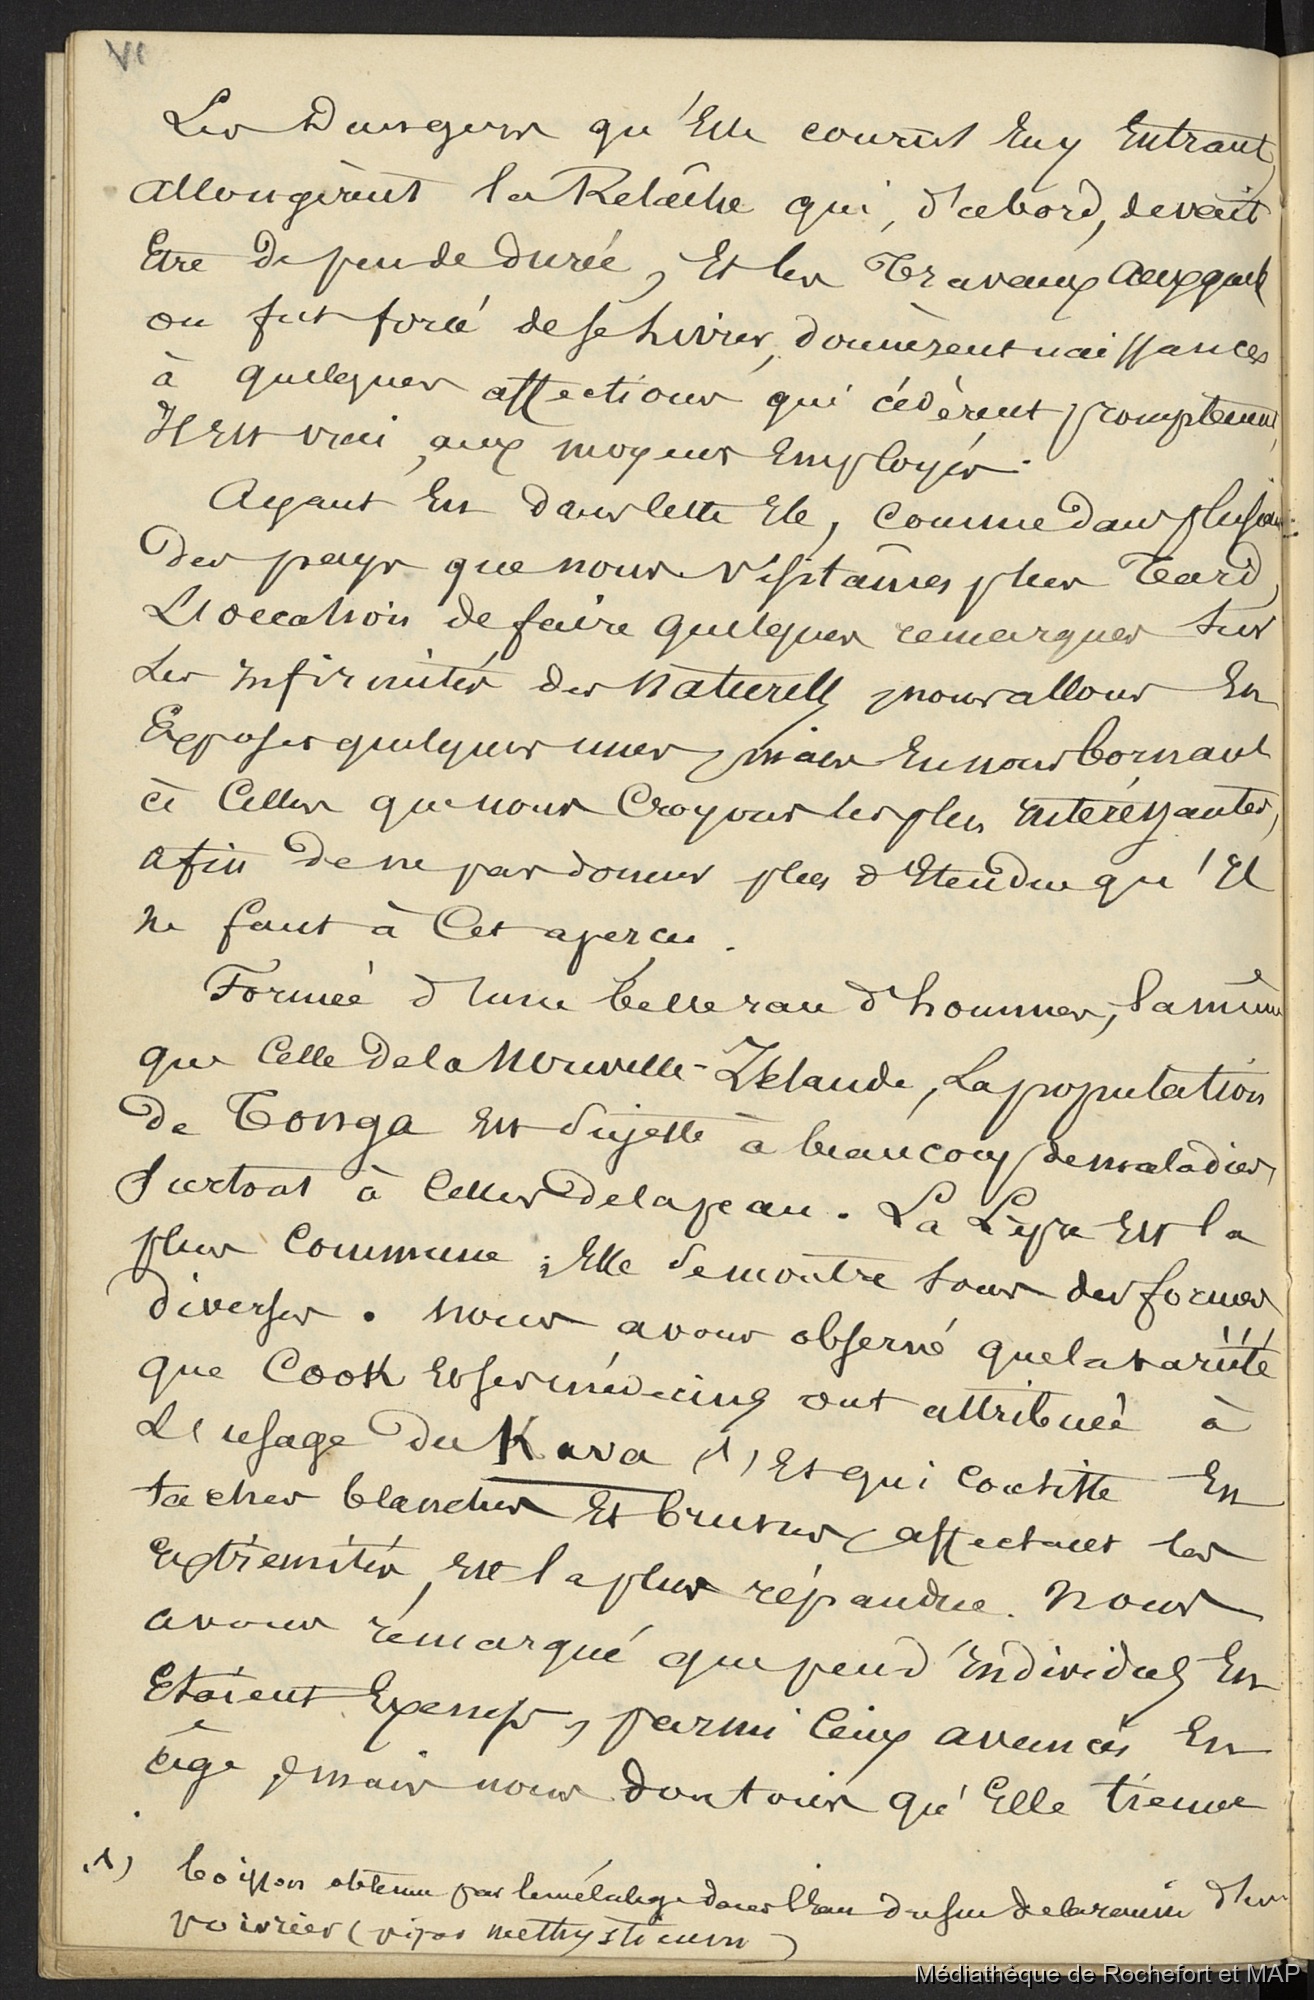 VI
Les Dangers qu'Elle courut En y Entrant,
allongèrent la Relâche qui, d'abord, devait
Etre De peu de durée, Et les Travaux auxquels
on fut forcé de se Livrer, donnèrent naissances
à quelques affections qui cédèrent promptement,
Il Est vrai, aux moyens Employés.
Ayant En dans cette Ile, comme dans plusieurs
des pays que nous visitâmes plus Tard,
L'occasion de faire quelques remarques sur
Les Infirmités des Naturels, nous allons En
Exposer quelques unes, mais En nous bornant
à Celles que nous Croyons les plus Intéressantes,
afin De ne pas donner plus d'Etendue qu'Il
ne faut à Cet aperçu.
Formée d'une belle race d'hommes, la même
que Celle De la Nouvelle-Zélande, La population
De Tonga Est Sujette à beaucoup de maladies,
Surtout à Celles De la peau. La Lèpre Est la
plus Commune ; Elle se montre sous des formes
Diverses. Nous avons observé que la variété
que Cook Et ses médecins ont attribuée à
L'usage Du Kava (1) Et qui Consiste En
taches blanches Et brunes affectant les
Extrémités, Est la plus répandue. Nous
avons remarqué que peu d'Individus En
Etaient Exempts, parmi Ceux avancés En
âge, mais nous doutons qu'Elle tienne
(1) boisson obtenue par le mélange dans l'Eau du suc de la racine d'un
poivrier (piper methysticum)
Médiathèque de Rochefort et MAP